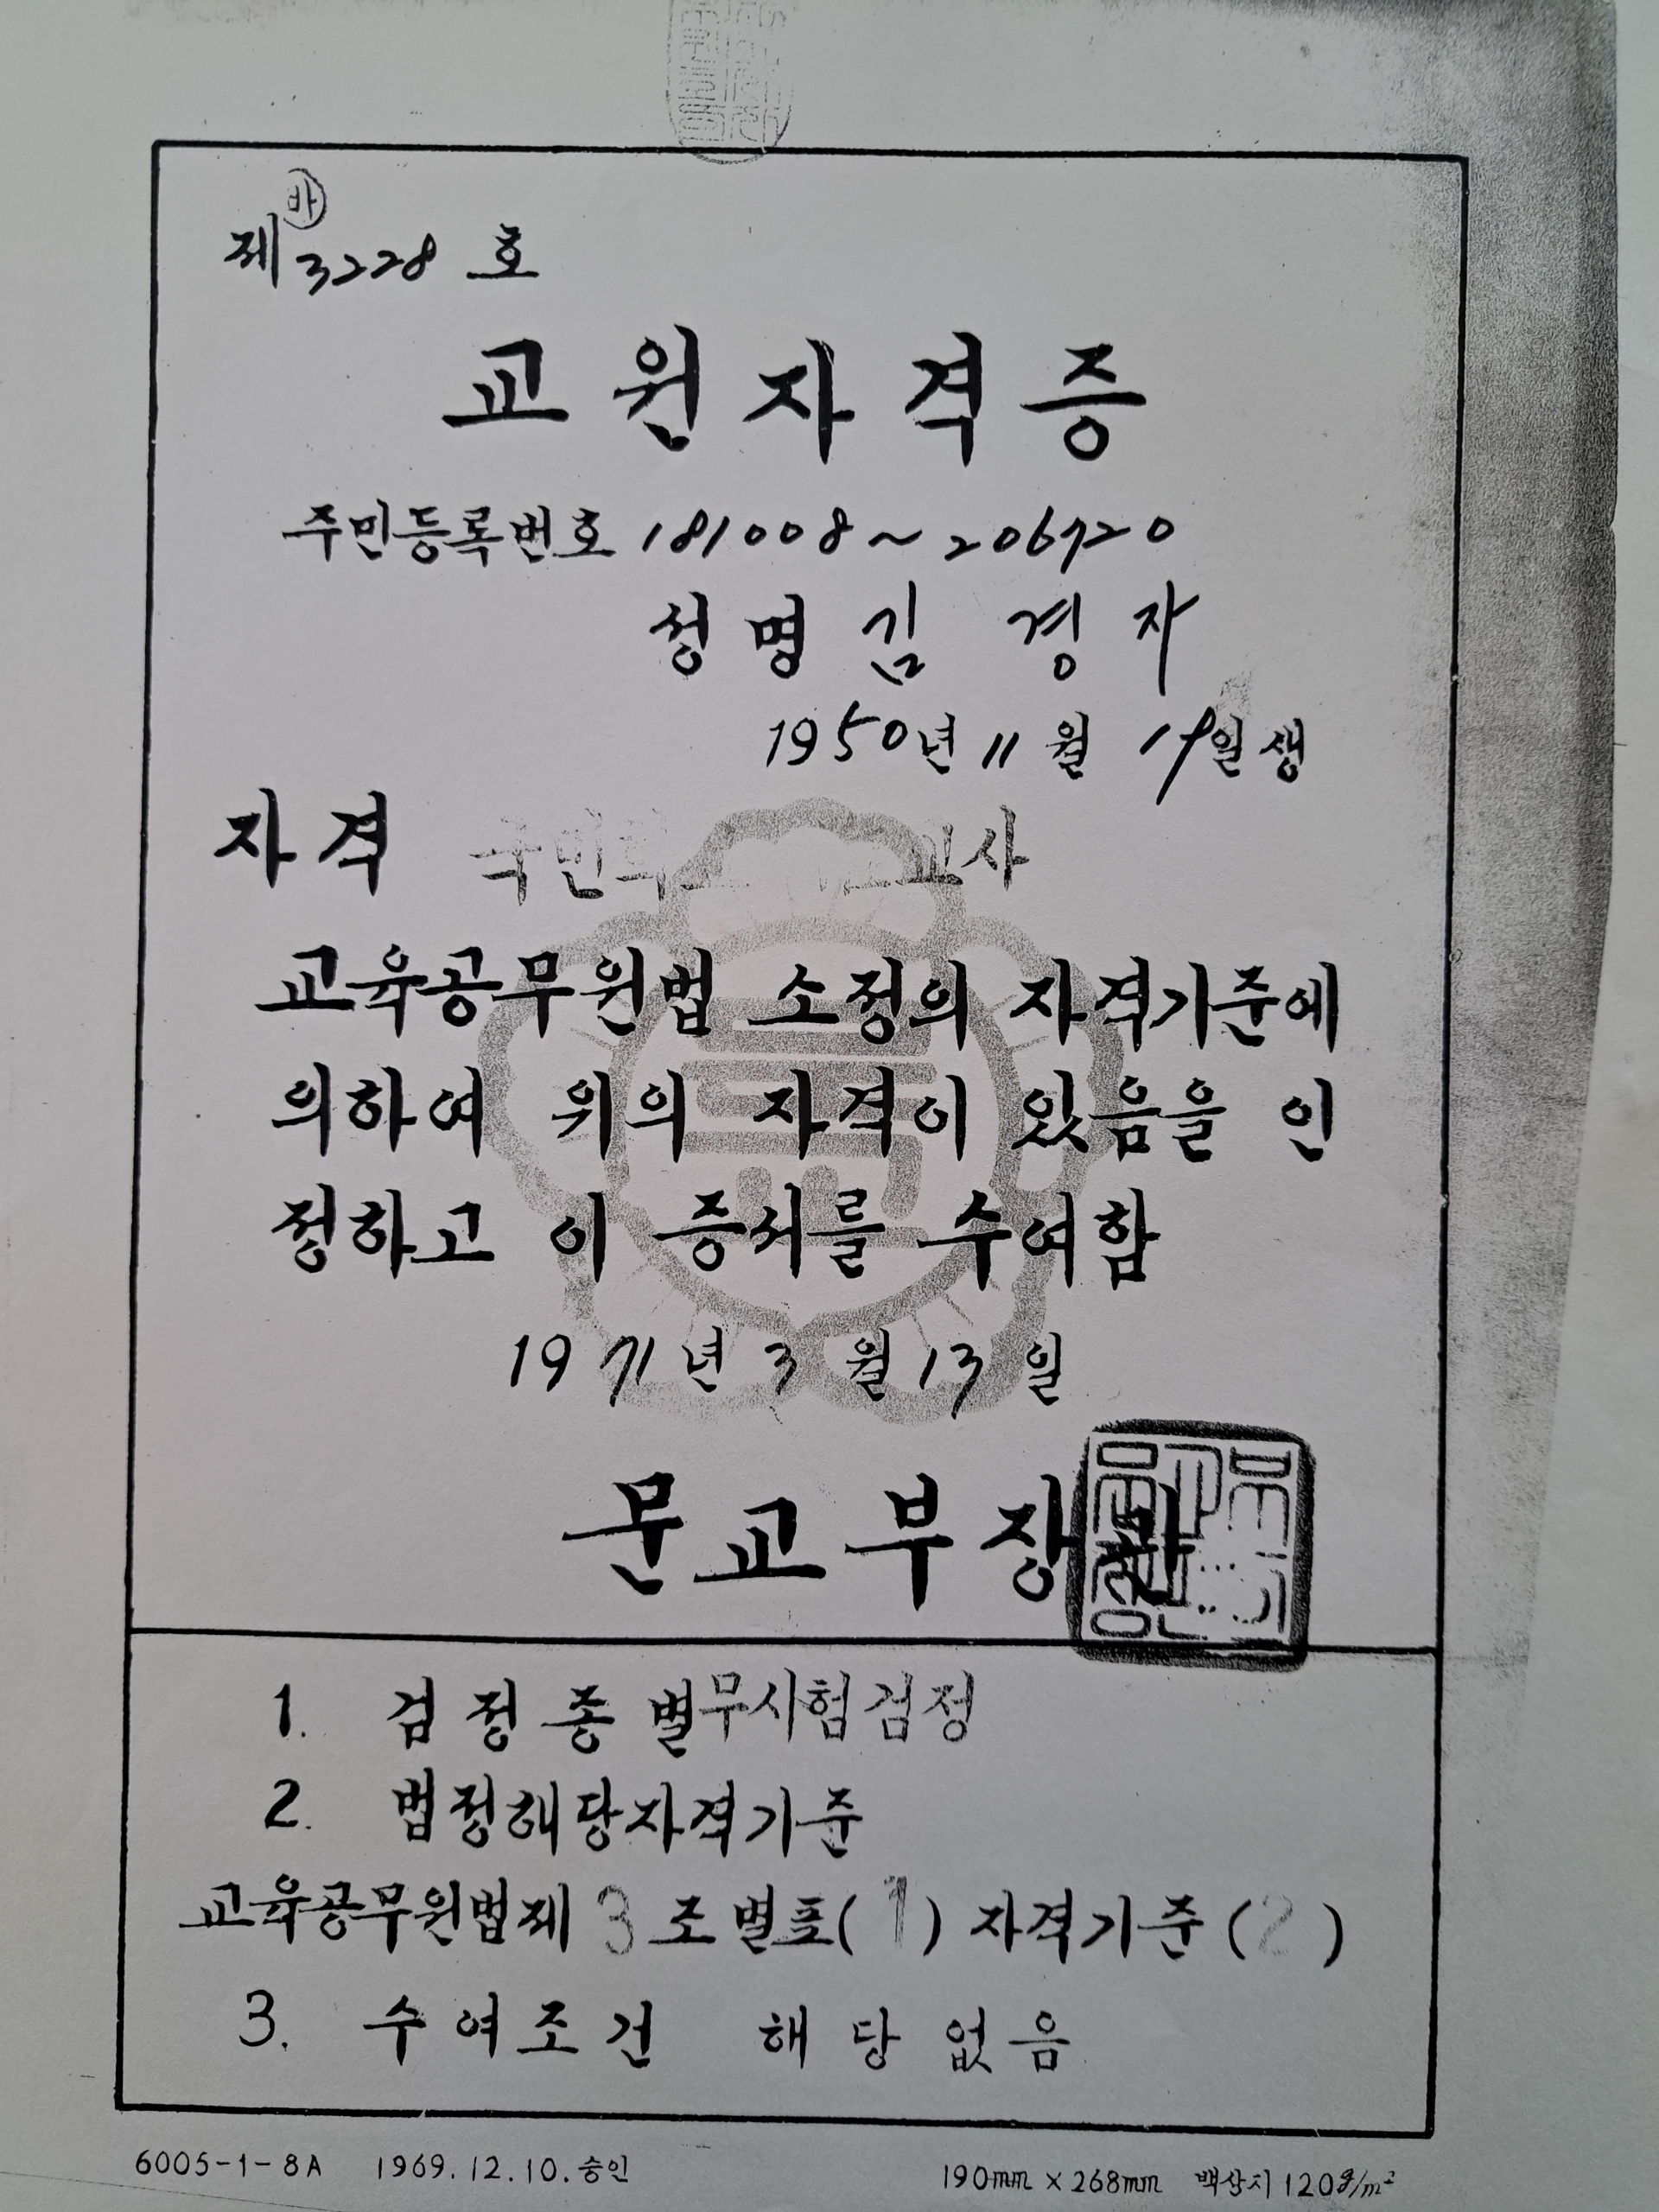 ㉳
제 3228 호
교원자격증
주민등록번호 181008~206720
성명 김경자
1950년 11월 19일생
자격 국민학교 교사
교육공무원법 소정의 자격기준에
의하여 위의 자격이 있음을 인
정하고 이 증서를 수여함
1971년 3월 13일
문교부장관
1. 검정종별 무시험검정
2. 법정해당자격기준
교육공무원법제 3 조별표(1) 자격기준(2)
3. 수여조건 해당없음
6005-1-8A 1969.12.10.승인
190mm × 268mm 백상지 120g/m²